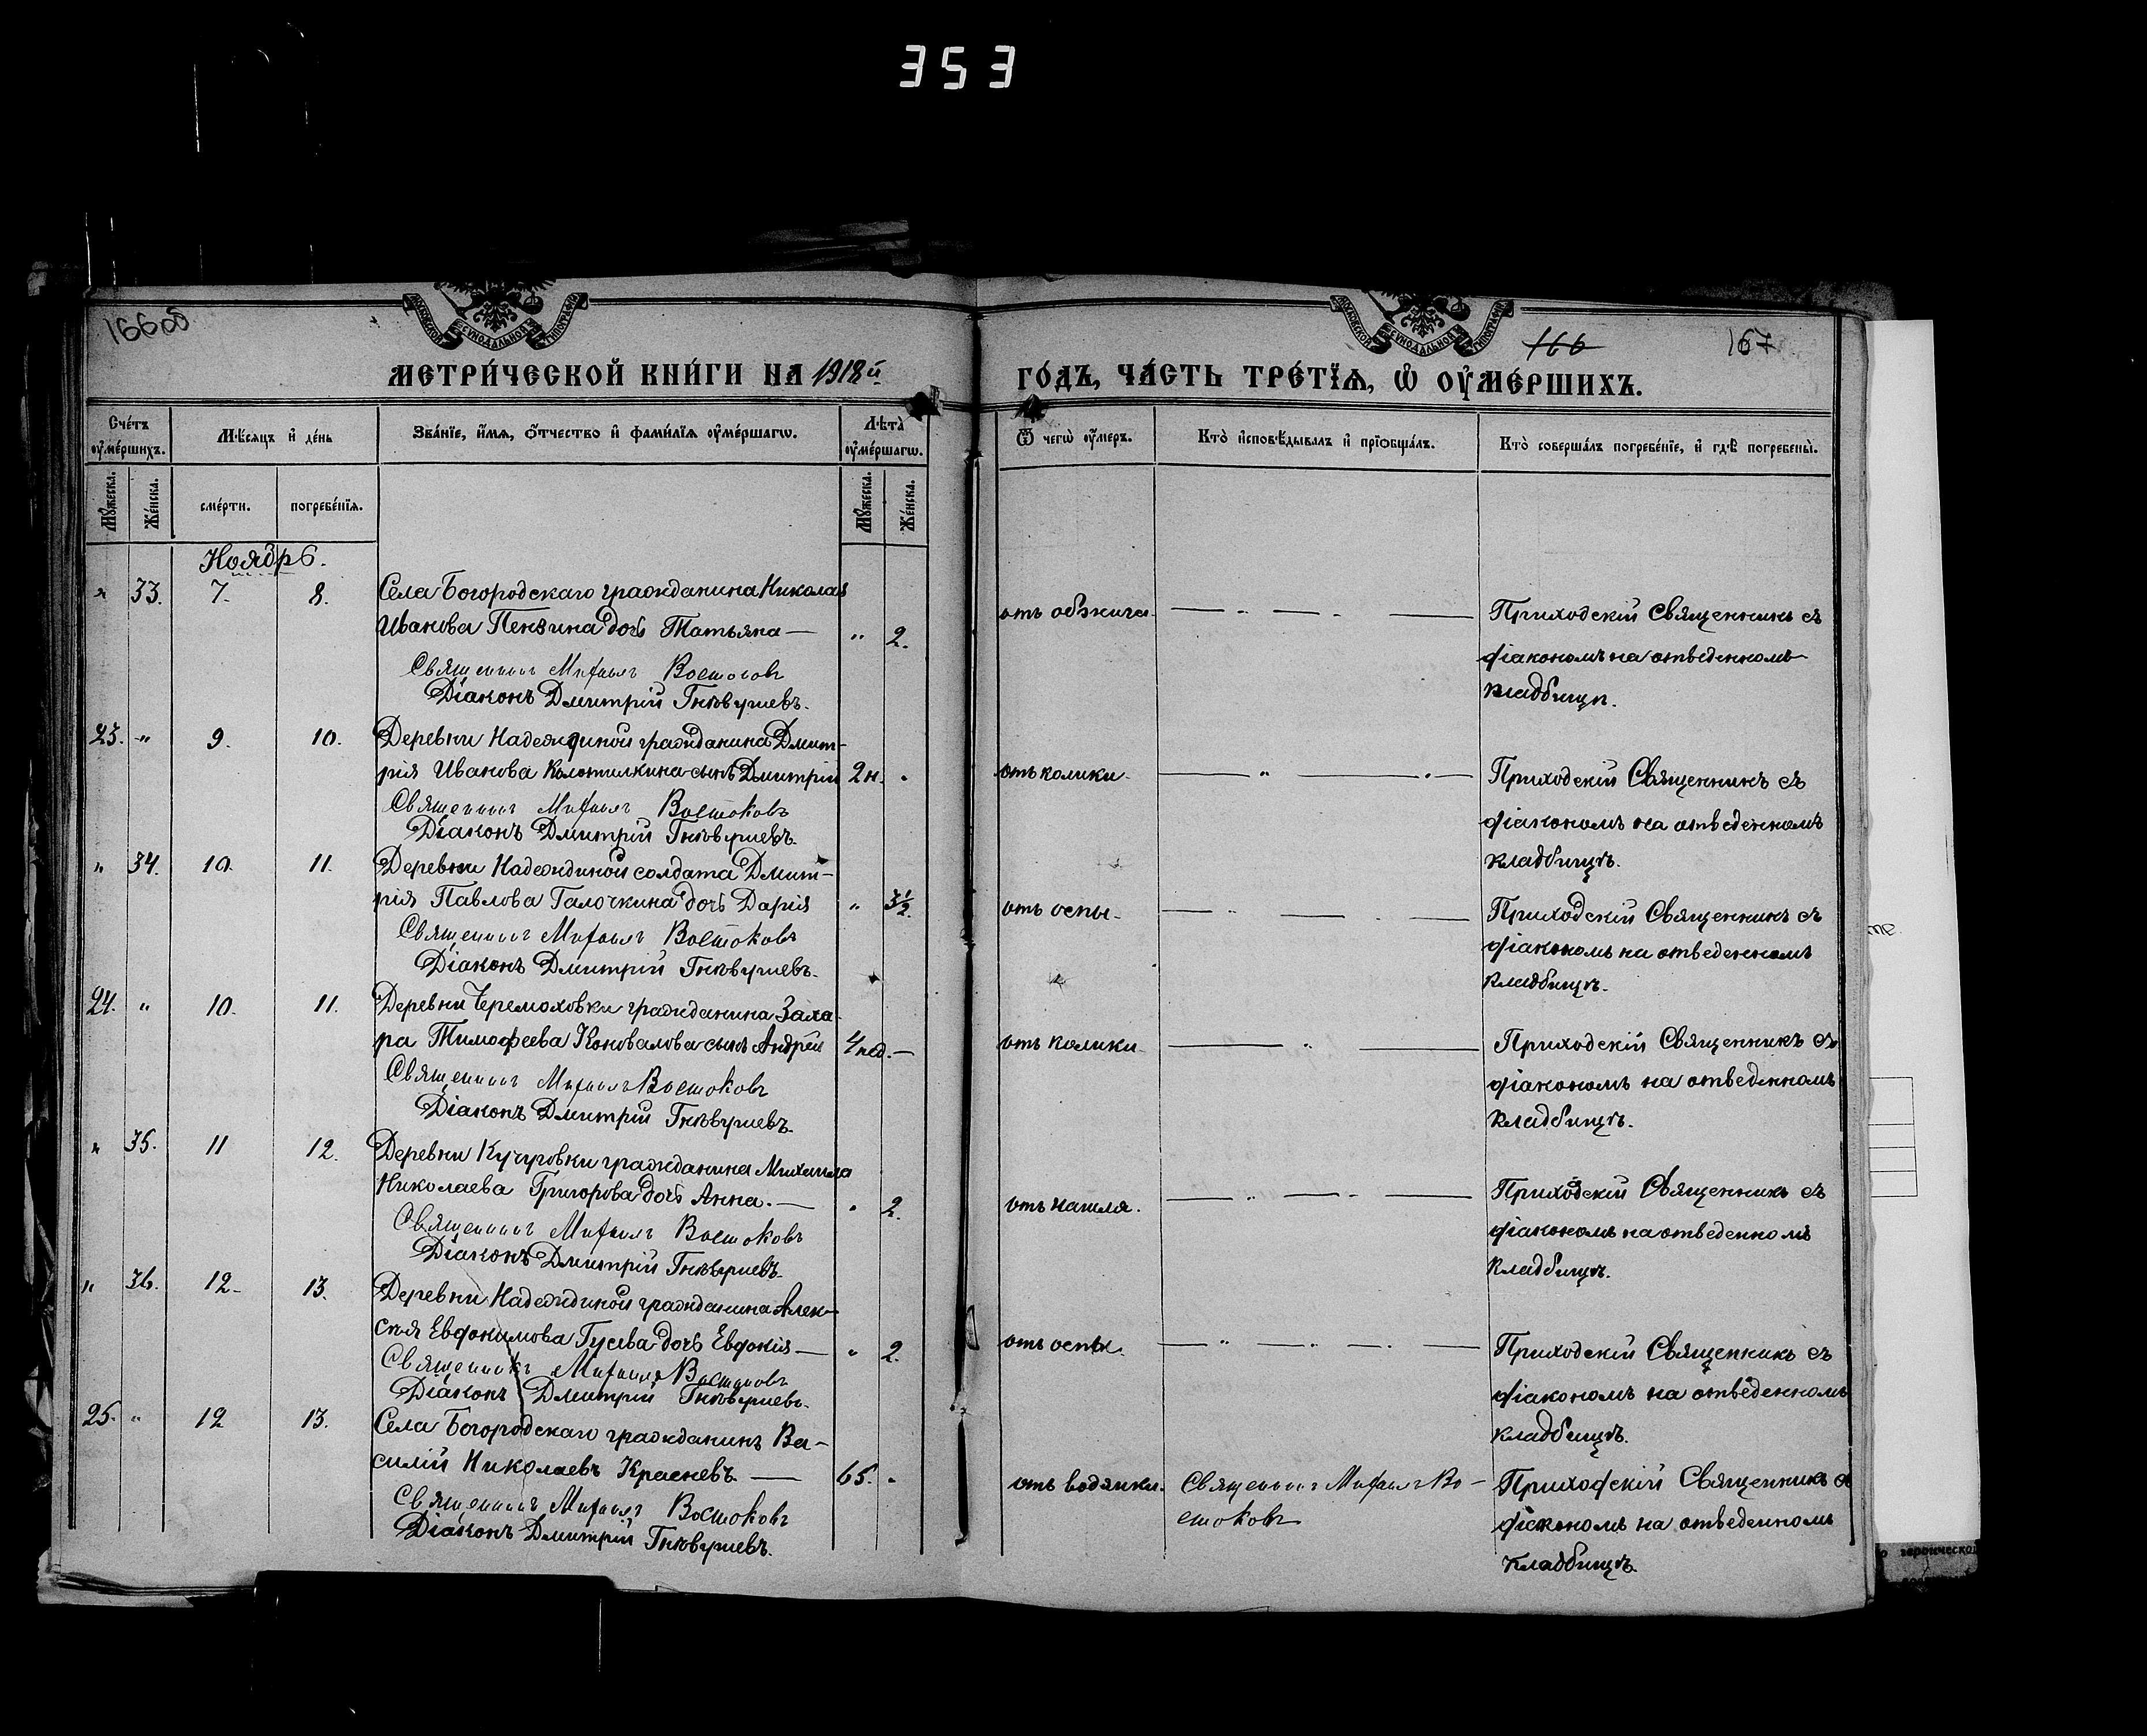 353
166об
166
167
МЕТРИ́ЧЕСКОЙ КНИ́ГИ НА 1918й
ГО́ДЪ, ЧА́СТЬ ТРЕ́ТЇѦ, Ѡ҆ ОУ҆МЕ́РШИХЪ.
Сче́тъ оу҆ме́ршихъ.
Мѣ́сяцъ и҆ де́нь
Зва́нїе, и҆́мѧ, ѻ҆́тчество и҆ фами́лїѧ оу҆ме́ршагѡ.
Лѣ́та оу҆ме́ршагѡ.
Ѿ чегѡ̀ оу҆́меръ.
Кто̀ и҆сповѣ́дывалъ и҆ прїѻбща́лъ.
Кто̀ соверша́лъ погребе́нїе, и҆ гдѣ̀ погребены̀.
Мꙋ́жеска.
Же́нска.
сме́рти.
погребе́нїѧ.
Мꙋ́жеска.
Же́нска.
Ноябрь.
" 33. 7. 8. Села Богородскаго гражданина Николая
Иванова Пензина дочь Татьяна — " 2.
Священникъ Михаилъ Востоковъ
Діаконъ Дмитрій Гнѣвушевъ.
отъ обжига.
Приходскій Священникъ съ
діакономъ на отведенномъ
кладбищѣ.
23. " 9. 10. Деревни Надеждиной гражданина Дмит-
рія Иванова Колотилкина сынъ Дмитрій 2 н. "
Священникъ Михаилъ Востоковъ
Діаконъ Дмитрій Гнѣвушевъ.
отъ колики.
Приходскій Священникъ съ
діакономъ на отведенномъ
кладбищѣ.
" 34. 10. 11. Деревни Надеждиной солдата Дмит-
рія Павлова Галочкина дочь Дарія " 3½
Священникъ Михаилъ Востоковъ
Діаконъ Дмитрій Гнѣвушевъ.
отъ оспы.
Приходскій Священникъ съ
діакономъ на отведенномъ
кладбищѣ.
24. " 10. 11. Деревни Черемоховки гражданина Заха-
ра Тимофеева Коновалова сынъ Андрей 4 нед. —
Священникъ Михаилъ Востоковъ
Діаконъ Дмитрій Гнѣвушевъ.
отъ колики.
Приходскій Священникъ съ
діакономъ на отведенномъ
кладбищѣ.
" 35. 11 12. Деревни Кучуровки гражданина Михаила
Николаева Григорова дочь Анна. — " 2.
Священникъ Михаилъ Востоковъ
Діаконъ Дмитрій Гнѣвушевъ.
отъ кашля.
Приходскій Священникъ съ
діакономъ на отведенномъ
кладбищѣ.
" 36. 12. 13. Деревни Надеждиной гражданина Алек-
сѣя Евдокимова Гусева дочь Евдокія — " 2.
Священникъ Михаилъ Востоковъ
Діаконъ Дмитрій Гнѣвушевъ.
отъ оспы.
Приходскій Священникъ съ
діакономъ на отведенномъ
кладбищѣ.
25. " 12 13. Села Богородскаго гражданинъ Ва-
силій Николаевъ Красневъ. — 65. "
Священникъ Михаилъ Востоковъ
Діаконъ Дмитрій Гнѣвушевъ.
отъ водянки.
Священникъ Михаилъ Во-
стоковъ
Приходскій Священникъ съ
діакономъ на отведенномъ
кладбищѣ.